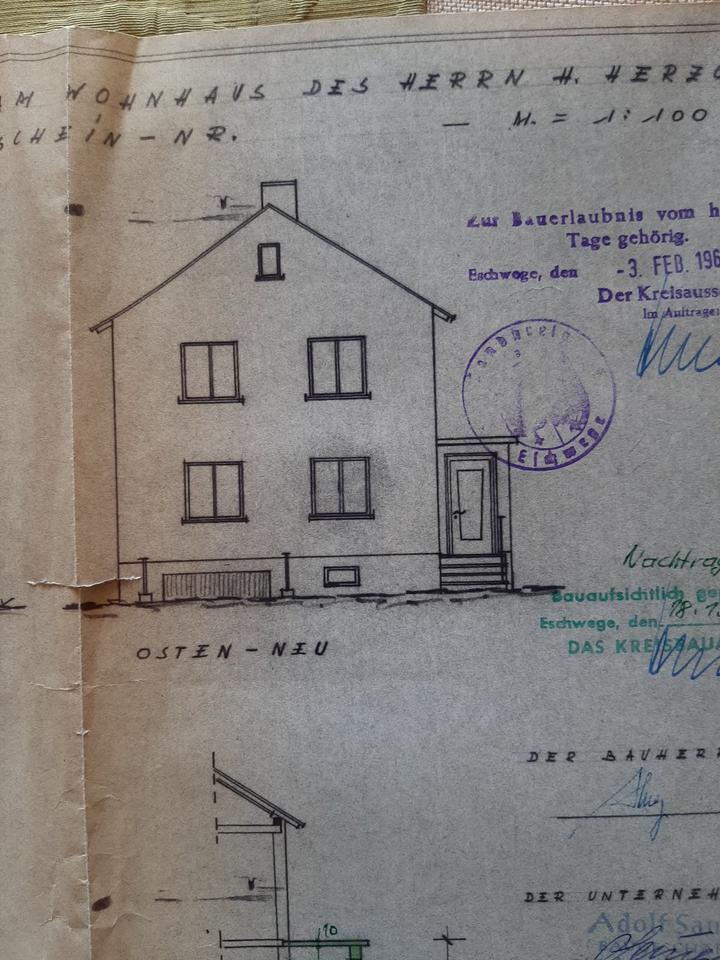 AM WOHNHAUS DES HERRN H. HERZO
SCHEIN - NR.
— M. = 1:100
Zur Bauerlaubnis vom h
Tage gehörig.
Eschwege, den -3. FEB. 196
Der Kreisauss
Im Auftrage:
OSTEN - NEU
Nachtrag
Bauaufsichtlich
Eschwege, den 18.1
DAS KREISBAUA
DER BAUHERR
DER UNTERNEH
Adolf San
10